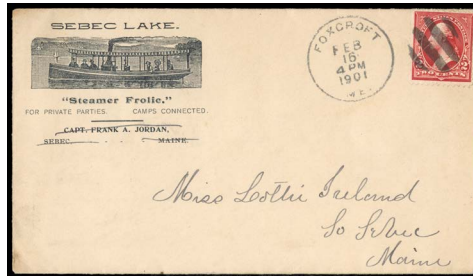 SEBEC LAKE.
"Steamer Frolic."
FOR PRIVATE PARTIES. CAMPS CONNECTED.
CAPT. FRANK A. JORDAN,
SEBEC MAINE.
FOXCROFT
FEB
15
4 PM
1901
ME.
TWO CENTS
2
Miss Lottie Ireland
So Sebec
Maine